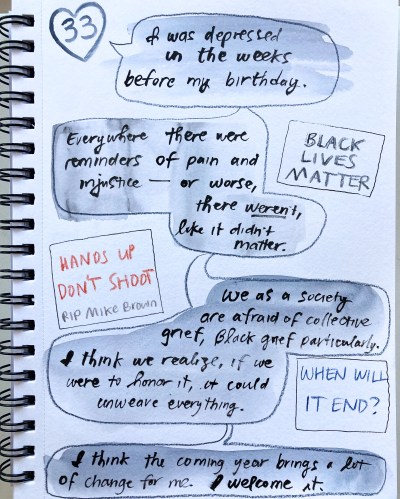 33
I was depressed
in the weeks
before my birthday.
Everywhere there were
reminders of pain and
injustice — or worse,
there weren't,
like it didn't
matter.
BLACK
LIVES
MATTER
HANDS UP
DON'T SHOOT
RIP MIKE BROWN
We as a society
are afraid of collective
grief, Black grief particularly.
I think we realize, if we
were to honor it, it could
unweave everything.
WHEN WILL
IT END?
I think the coming year brings a lot
of change for me. I welcome it.